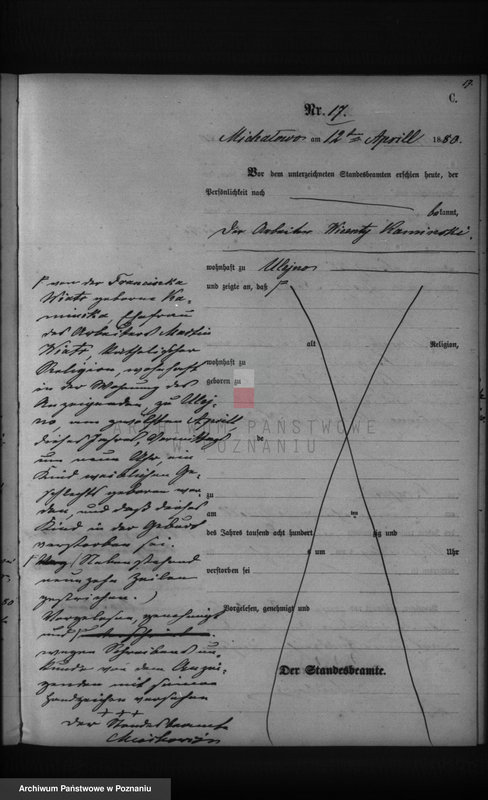 17.
C.
Nr. 17.
Michałowo am 12ten Aprill 1880.
Vor dem unterzeichneten Standesbeamten erschien heute, der
Persönlichkeit nach
bekannt,
Der Arbeiter Vicenty Kaminski.
wohnhaft zu Ulejno
und zeigte an, daß
von der Franciszka
Wiatr geborene Ka-
minska Ehefrau
des Arbeiters Martin
Wiatr, katholischer
Religion, wohnhaft
in der Wohnung des
Anzeigenden, zu Ulej-
no, am zwölften Aprill
dieses Jahres, Vormittag
um neun Uhr, ein
Kind weiblichen Ge-
schlechts geboren wor-
den, und daß dieses
Kind in der Geburt
verstorben sei.
Nebenstehend
neunzehn Zeilen
gestrichen.
Vorgelesen, genehmigt
und
wegen Schreibens un-
kunde von dem Anzei-
genden mit seinem
Handzeichen versehen
+++
Der Standesbeamte
alt Religion,
wohnhaft zu
geboren zu
de
zu
am ten
des Jahres tausend acht hundert zig und
um Uhr
verstorben sei
Vorgelesen, genehmigt und
Der Standesbeamte.
ARCHIWUM PAŃSTWOWE
W POZNANIU
Archiwum Państwowe w Poznaniu